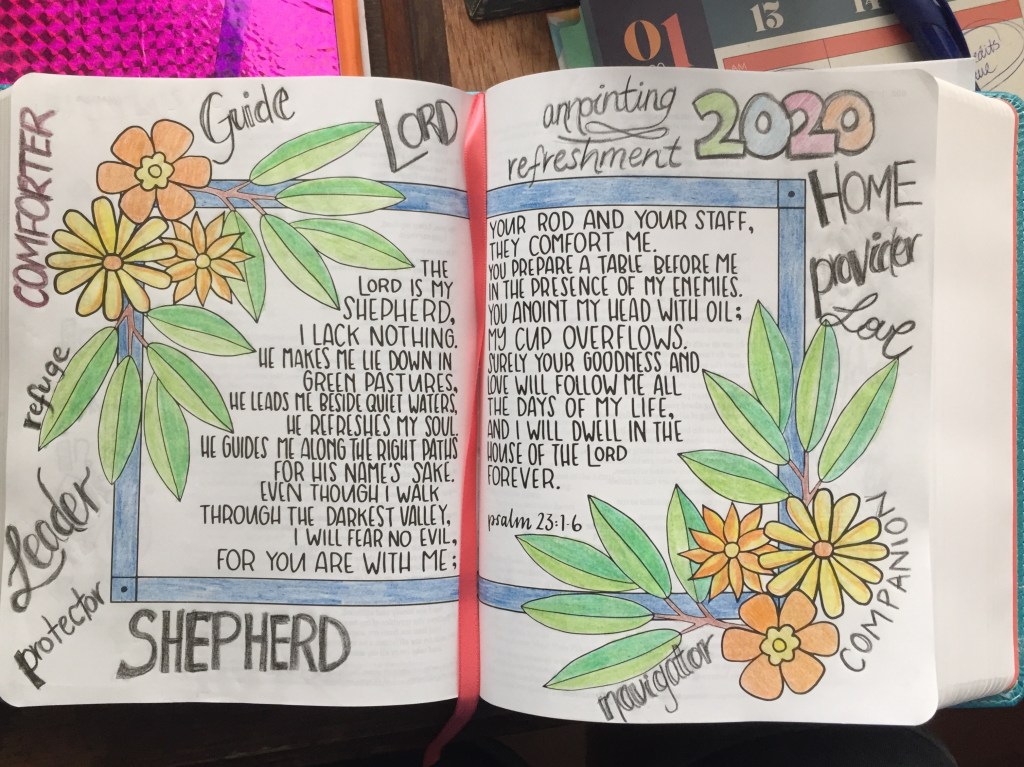 Guide
LORD
COMFORTER
THE
LORD IS MY
SHEPHERD,
I LACK NOTHING.
HE MAKES ME LIE DOWN IN
GREEN PASTURES,
HE LEADS ME BESIDE QUIET WATERS,
HE REFRESHES MY SOUL.
HE GUIDES ME ALONG THE RIGHT PATHS
FOR HIS NAME'S SAKE.
EVEN THOUGH I WALK
THROUGH THE DARKEST VALLEY,
I WILL FEAR NO EVIL,
FOR YOU ARE WITH ME;
refuge
Leader
protector
SHEPHERD
annointing
refreshment
2020
HOME
provider
Love
YOUR ROD AND YOUR STAFF,
THEY COMFORT ME.
YOU PREPARE A TABLE BEFORE ME
IN THE PRESENCE OF MY ENEMIES.
YOU ANOINT MY HEAD WITH OIL;
MY CUP OVERFLOWS.
SURELY YOUR GOODNESS AND
LOVE WILL FOLLOW ME ALL
THE DAYS OF MY LIFE,
AND I WILL DWELL IN THE
HOUSE OF THE LORD
FOREVER.
psalm 23:1-6
COMPANION
navigator
01
13
14
AM